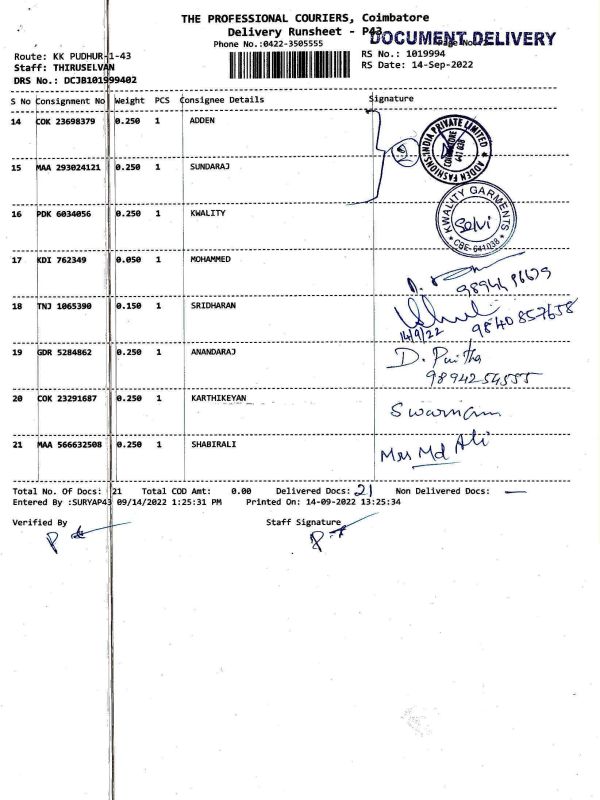 THE PROFESSIONAL COURIERS, Coimbatore
Delivery Runsheet - P43
DOCUMENT DELIVERY
Phone No.:0422-3505555
Route: KK PUDHUR-1-43
RS No.: 1019994
Staff: THIRUSELVAN
RS Date: 14-Sep-2022
DRS No.: DCJB101999402
S No Consignment No Weight PCS Consignee Details Signature
14 COK 23698379 0.250 1 ADDEN
ADDEN FASHIONS INDIA PRIVATE LIMITED
COIMBATORE 641 038
15 MAA 293024121 0.250 1 SUNDARAJ
16 PDK 6034056 0.250 1 KWALITY
KWALITY GARMENTS
Selvi
CBE-641038
17 KDI 762349 0.050 1 MOHAMMED
18 TNJ 1065390 0.150 1 SRIDHARAN
14/9/22 9840857658
19 GDR 5284862 0.250 1 ANANDARAJ
9894254555
20 COK 23291687 0.250 1 KARTHIKEYAN
Swarnam
21 MAA 566632508 0.250 1 SHABIRALI
Mrs Md Ali
Total No. Of Docs: 21 Total COD Amt: 0.00 Delivered Docs: 21 Non Delivered Docs: —
Entered By :SURYAP43 09/14/2022 1:25:31 PM Printed On: 14-09-2022 13:25:34
Verified By Staff Signature